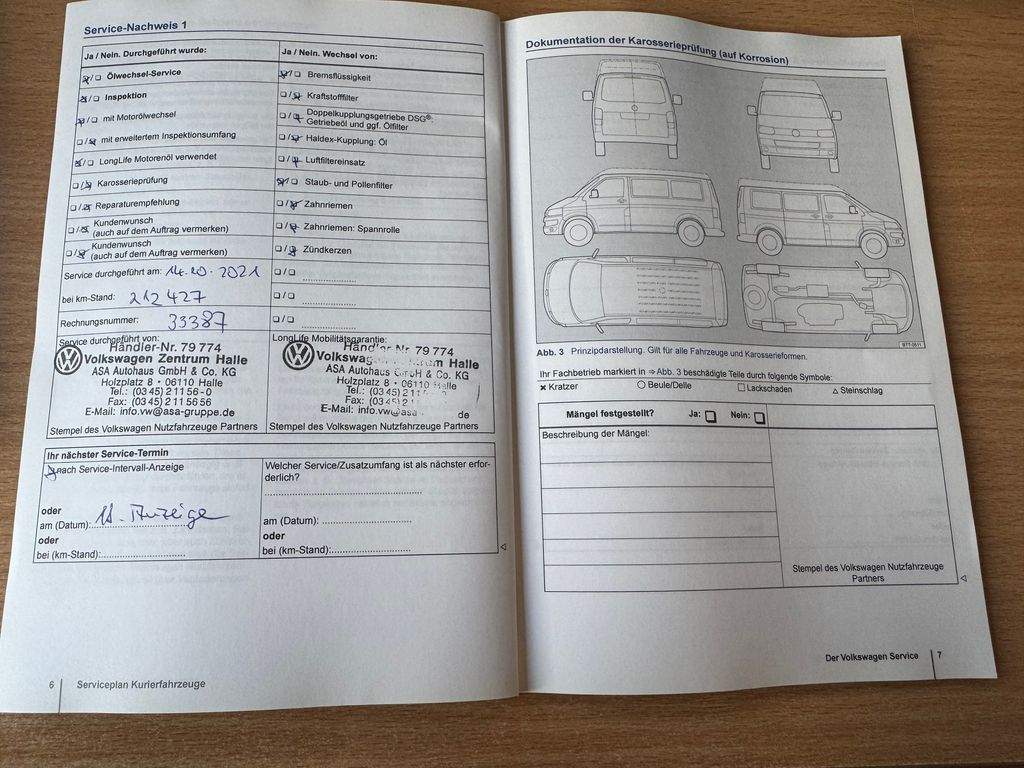 Service-Nachweis 1
Ja / Nein. Durchgeführt wurde:
Ölwechsel-Service
Inspektion
mit Motorölwechsel
mit erweitertem Inspektionsumfang
LongLife Motorenöl verwendet
Karosserieprüfung
Reparaturempfehlung
Kundenwunsch
(auch auf dem Auftrag vermerken)
Kundenwunsch
(auch auf dem Auftrag vermerken)
Service durchgeführt am: 14.10.2021
bei km-Stand: 212427
Rechnungsnummer: 33387
Service durchgeführt von:
Händler-Nr. 79 774
Volkswagen Zentrum Halle
ASA Autohaus GmbH & Co. KG
Holzplatz 8 • 06110 Halle
Tel.: (03 45) 2 11 56-0
Fax: (03 45) 2 11 56 56
E-Mail: info.vw@asa-gruppe.de
Stempel des Volkswagen Nutzfahrzeuge Partners
Ja / Nein. Wechsel von:
Bremsflüssigkeit
Kraftstofffilter
Doppelkupplungsgetriebe DSG®:
Getriebeöl und ggf. Ölfilter
Haldex-Kupplung: Öl
Luftfiltereinsatz
Staub- und Pollenfilter
Zahnriemen
Zahnriemen: Spannrolle
Zündkerzen
LongLife Mobilitätsgarantie:
Händler Nr. 79 774
Halle
ASA Autohaus GmbH & Co. KG
Holzplatz 8 • 06110 Halle
Tel.: (03 45) 2 11
Fax: (03 45)
E-Mail: info.vw@asa de
Stempel des Volkswagen Nutzfahrzeuge Partners
Ihr nächster Service-Termin
nach Service-Intervall-Anzeige
oder
am (Datum): Anzeige
oder
bei (km-Stand):
Welcher Service/Zusatzumfang ist als nächster erfor-
derlich?
am (Datum):
oder
bei (km-Stand):
6 Serviceplan Kurierfahrzeuge
Dokumentation der Karosserieprüfung (auf Korrosion)
B7T-0511
Abb. 3 Prinzipdarstellung. Gilt für alle Fahrzeuge und Karosserieformen.
Ihr Fachbetrieb markiert in ⇒ Abb. 3 beschädigte Teile durch folgende Symbole:
× Kratzer ○ Beule/Delle □ Lackschaden △ Steinschlag
Mängel festgestellt? Ja: □ Nein: □
Beschreibung der Mängel:
Stempel des Volkswagen Nutzfahrzeuge
Partners
Der Volkswagen Service 7